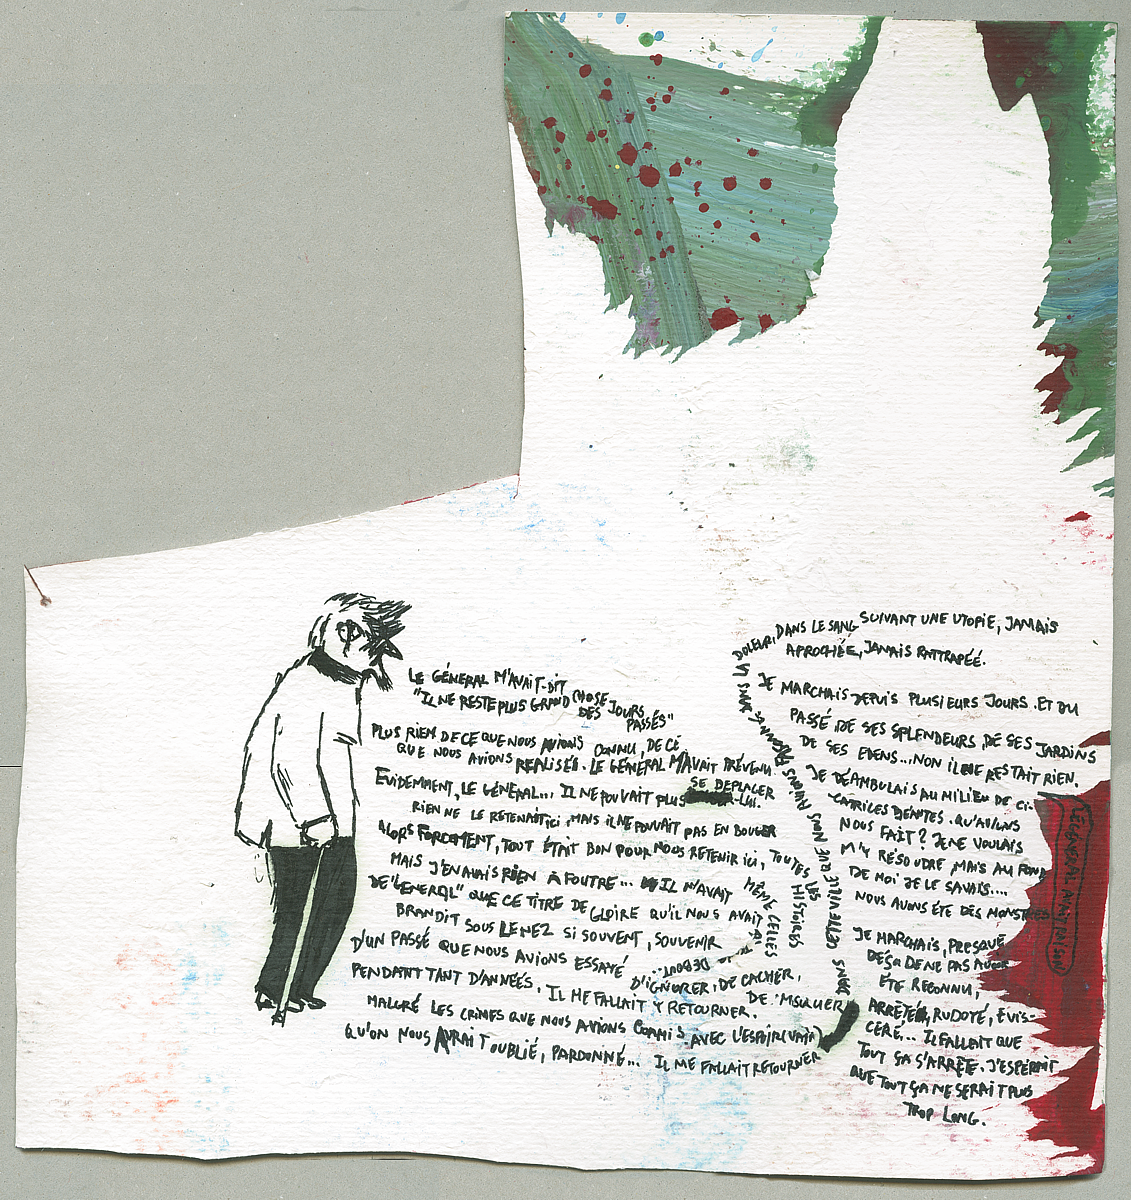 LE GÉNERAL M'AVAIT-DIT
"IL NE RESTE PLUS GRAND CHOSE
DES JOURS
PASSÉS"
PLUS RIEN DE CE QUE NOUS AVIONS CONNU, DE CE
QUE NOUS AVIONS REALISÉS. LE GÉNÉRAL M'AVAIT PRÉVENU
EVIDEMMENT, LE GÉNÉRAL... IL NE POUVAIT PLUS SE DEPLACER
-LUI.
RIEN NE LE RETENAIT ICI, MAIS IL NE POUVAIT PAS EN BOUGER
ALORS FORCEMENT, TOUT ÉTAIT BON POUR NOUS RETENIR ICI, TOUTES LES HISTOIRES
MÊME CELLES
DEBOUT...
MAIS J'EN AVAIS RIEN À FOUTRE... IL M'AVAIT
DE "GENERAL" QUE CE TITRE DE GLOIRE QU'IL NOUS AVAIT
BRANDIT SOUS LE NEZ SI SOUVENT, SOUVENIR
D'UN PASSÉ QUE NOUS AVIONS ESSAYÉ D'IGNORER, DE CACHER,
PENDANT TANT D'ANNÉES. IL ME FALLAIT Y RETOURNER. DE MASQUER
MALGRÉ LES CRIMES QUE NOUS AVIONS COMMIS AVEC L'ESPOIR (VAIN)
QU'ON NOUS AURAIT OUBLIÉ, PARDONNÉ... IL ME FALLAIT RETOURNER
DANS CETTE VILLE QUE NOUS AVIONS DANS LA DOULEUR, DANS LE SANG SUIVANT UNE UTOPIE, JAMAIS
APROCHÉE, JAMAIS RATTRAPÉE.
JE MARCHAIS DEPUIS PLUSIEURS JOURS. ET DU
PASSÉ DE SES SPLENDEURS DE SES JARDINS
DE SES EDENS... NON IL NE RESTAIT RIEN.
JE DÉAMBULAIS AU MILIEU DE CI-
CATRICES BÉANTES. QU'AVIONS
NOUS FAIT? JE NE VOULAIS
M'Y RÉSOUDRE MAIS AU FOND
DE MOI JE LE SAVAIS...
NOUS AVONS ÉTÉ DES MONSTRES
JE MARCHAIS, PRESQUE
DEÇU DE NE PAS AVOIR
ÉTÉ RECONNU,
ARRÊTÉ, RUDOYÉ, ÉVIS-
CERÉ... IL FALLAIT QUE
TOUT ÇA S'ARRÊTE. J'ESPÉRAIT
QUE TOUT ÇA NE SERAIT PLUS
TROP LONG.
LE GÉNÉRAL AVAIT RAISON